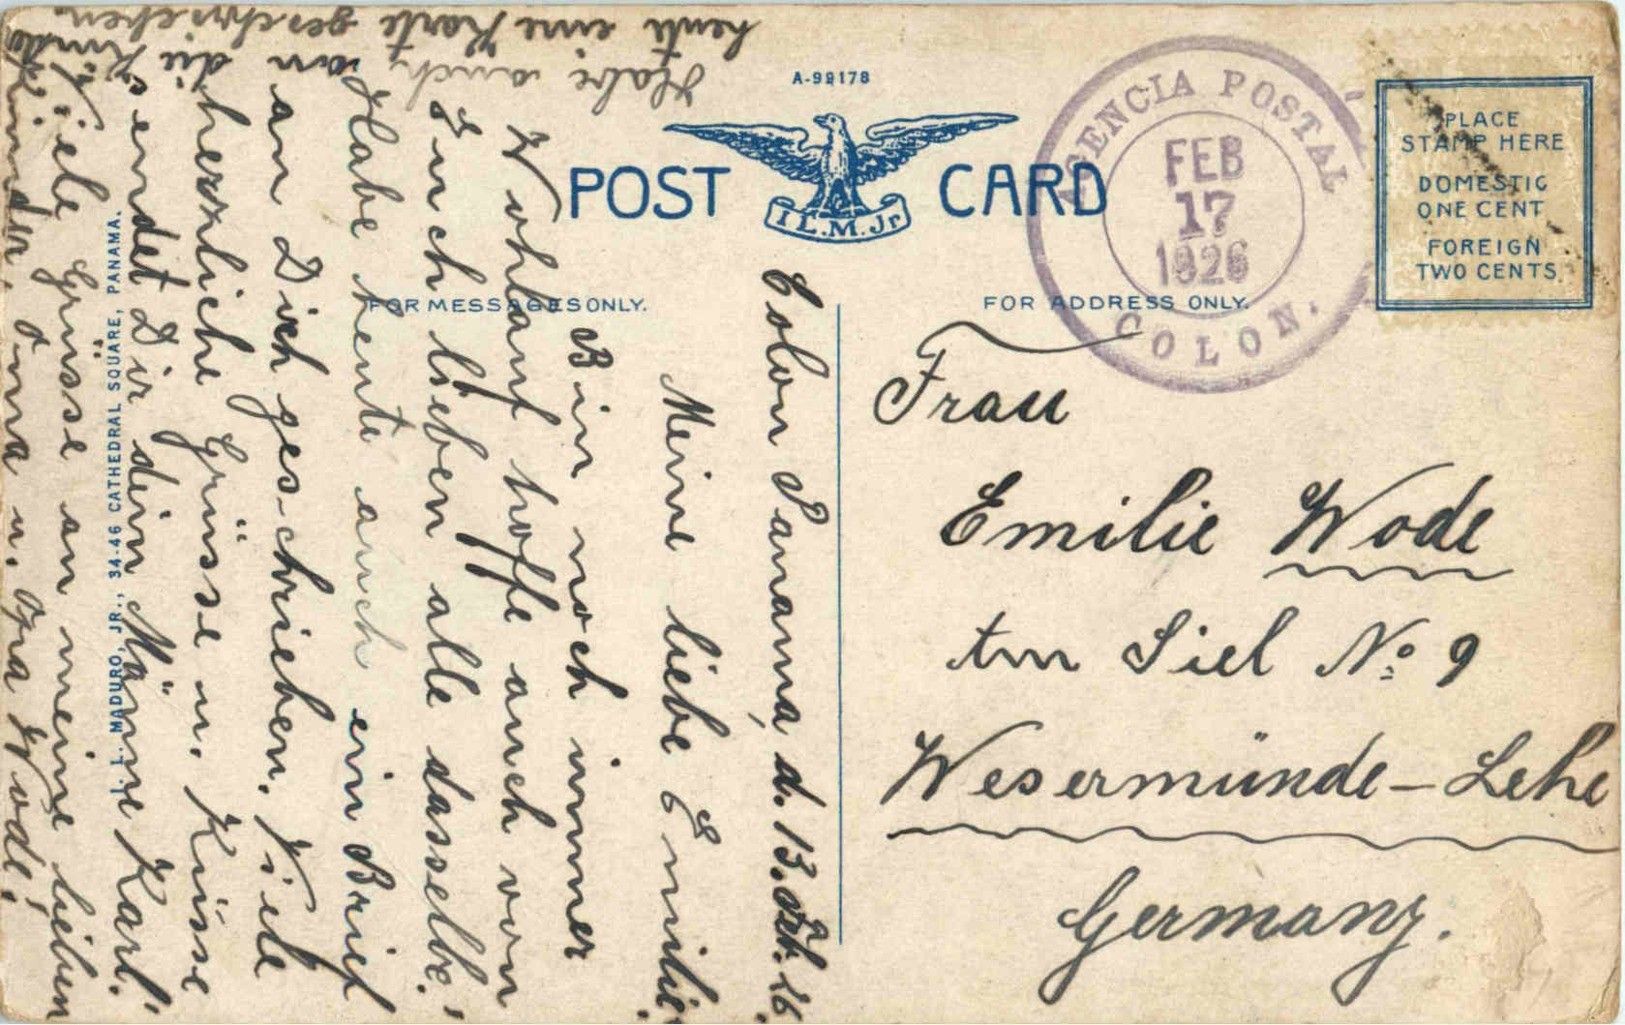 A-99178
POST CARD
I.L.M.Jr.
FOR MESSAGES ONLY.
FOR ADDRESS ONLY.
PLACE
STAMP HERE
DOMESTIC
ONE CENT
FOREIGN
TWO CENTS
AGENCIA POSTAL
FEB
17
1926
COLON.
Frau
Emilie Wode
Am Siel No. 9
Wesermünde - Lehe
Germany.
Colon Panama, d. 13. Feb. 26.
Meine liebe Emilie!
Bin noch immer
Wohlauf hoffe auch von
Euch lieben alle dasselbe!
Habe heute auch ein Brief
an Dich geschrieben. Viele
herzliche Grüsse u. Küsse
sendet Dir dein Männe Karl!
Viele Grüsse an meine lieben
Kinder, Oma u. Opa Wode!
Habe auch an die Kinder
heute eine Karte geschrieben.
I. L. MADURO, JR., 34-46 CATHEDRAL SQUARE, PANAMA.